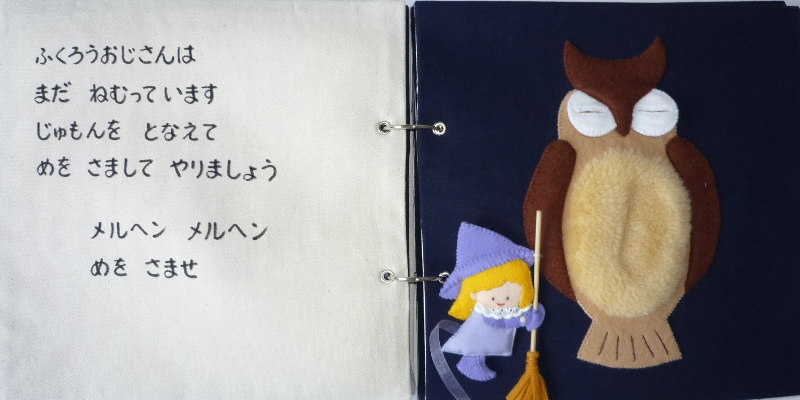 ふくろうおじさんは
まだ ねむっています
じゅもんを となえて
めを さまして やりましょう
メルヘン メルヘン
めを さませ